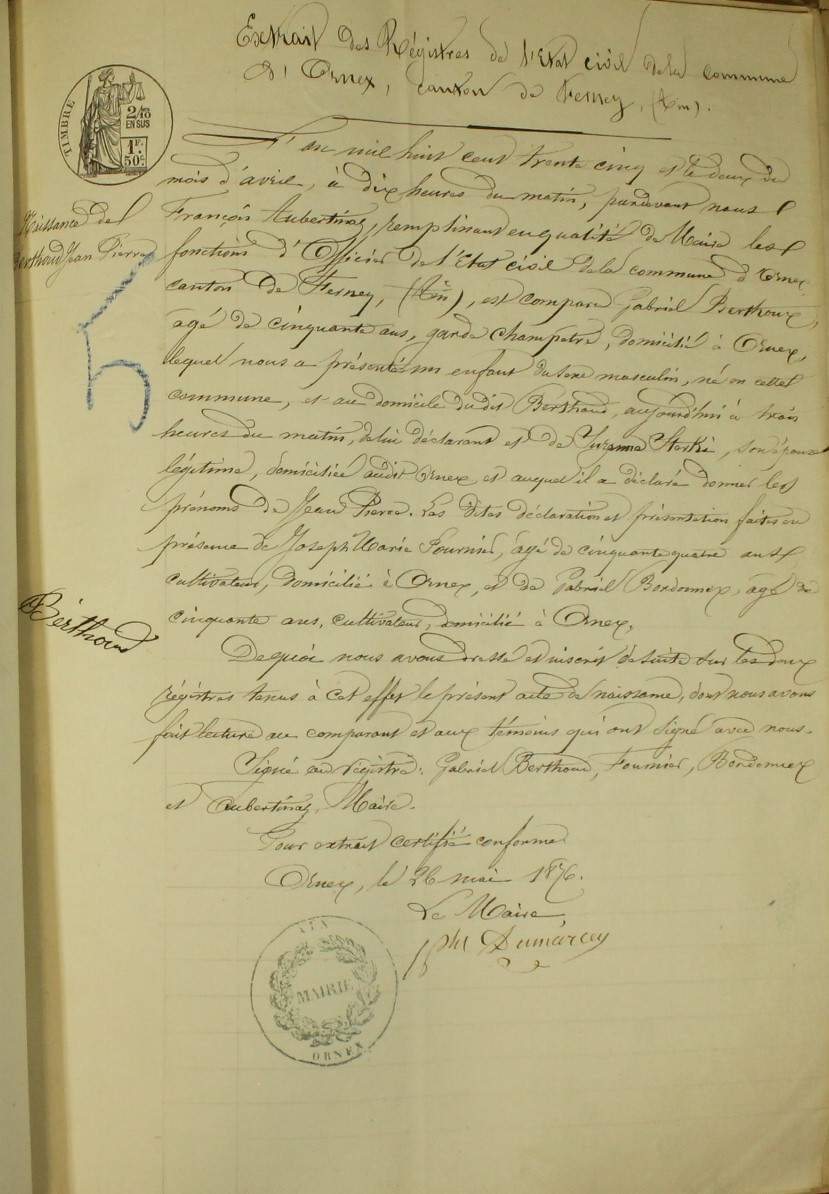 Extrait des Régistres de l'Etat civil de la commune
d'Ornex, canton de Ferney, (Ain).
TIMBRE
2/10
EN SUS
1 F.
50 c.
L'an mil huit cent trente cinq et le deux du
mois d'avril, à dix heures du matin, pardevant nous
Naissance de
Berthoud Jean Pierre
François Aubertinaz, remplissant en qualité de Maire les
fonctions d'Officier de l'Etat civil de la commune d'Ornex
canton de Ferney, (Ain), est comparu Gabriel Berthoux,
agé de cinquante ans, garde champetre, domicilié à Ornex,
lequel nous a présenté un enfant du sexe masculin, né en cette
commune, et au domicile dudit Berthoud, aujourd'hui à trois
heures du matin, de lui déclarant et de Suzanne Sterki, son épouse
légitime, domiciliée audit Ornex, et auquel il a déclaré donner les
prénoms de Jean Pierre. Les dites déclaration et présentation faites en
présence de Joseph Marie Fournier, âgé de cinquante quatre ans
cultivateur, domicilié à Ornex, et de Gabriel Bordonnex, agé de
cinquante ans, cultivateur, domicilié à Ornex.
Berthoud
De quoi nous avons dressé et inscrit de suite sur les deux
régistres tenus à cet effet le présent acte de naissance, dont nous avons
fait lecture au comparant et aux témoins qui ont signé avec nous.
Signé au régistre: Gabriel Berthoud, Fournier, Bordonnex
et Aubertinaz, Maire.
Pour extrait certifié conforme
Ornex, le 26 mai 1876.
Le Maire,
Dumarcey
AIN
MAIRIE
ORNEX